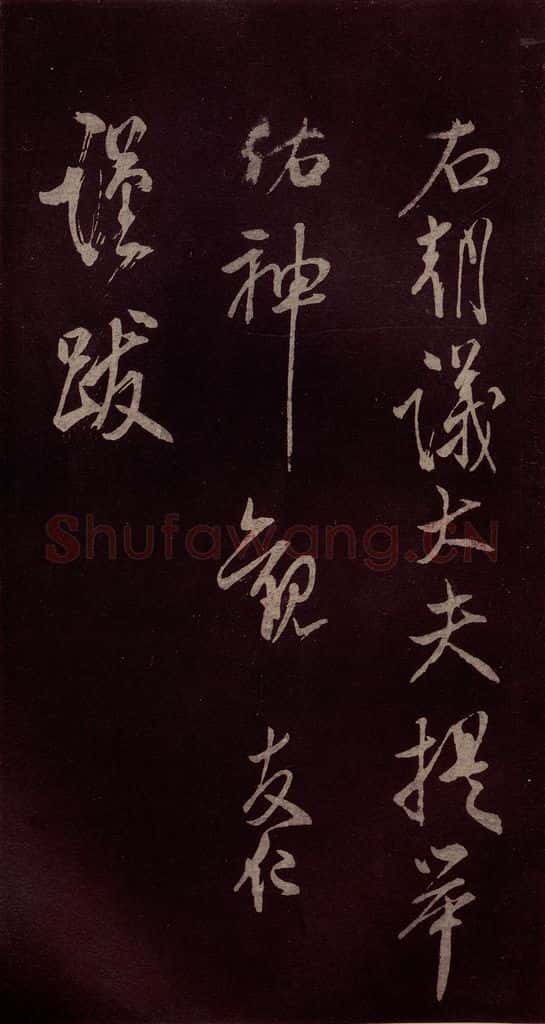 右朝議大夫提举
佑神觀 友仁
谨跋
Shufawang.CN